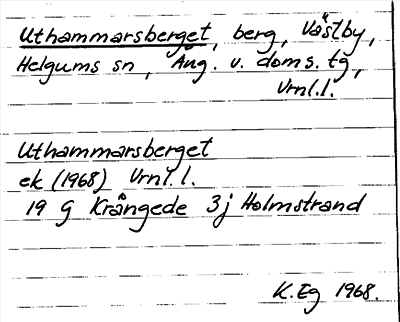 Uthammarsberget, berg, Västby,
Helgums sn, Ång. v. doms. tg,
Vrnl.l.
Uthammarsberget
ek (1968) Vrnl.l.
19 G Krångede 3j Holmstrand
K. Eg 1968.